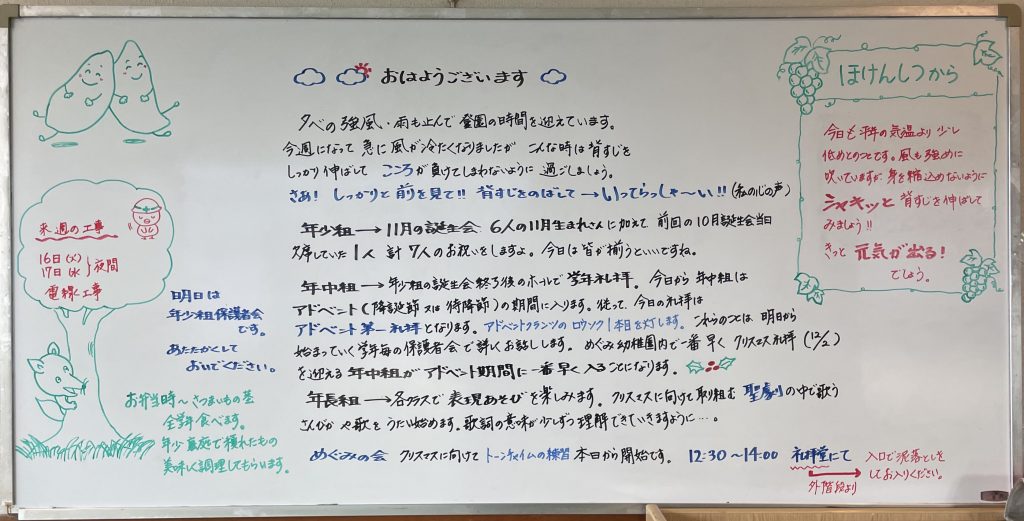 おはようございます
夕べの強風・雨も止んで登園の時間を迎えています。
今週になって急に風が冷たくなりましたが こんな時は背すじを
しっかり伸ばして こころが負けてしまわないように過ごしましょう。
さあ! しっかりと前を見て!! 背すじをのばして→いってらっしゃ〜い!! (私の心の声)
年少組→11月の誕生会 6人の11月生まれさんに加えて 前回の10月誕生会当日
欠席していた1人 計7人のお祝いをしますよ。今日は皆が揃うといいですね。
年中組→年少組の誕生会終了後のホールで学年礼拝。今日から年中組は
アドベント(降誕節又は待降節)の期間に入ります。従って、今日の礼拝は
アドベント第一礼拝となります。アドベントクランツのロウソク1本目を灯します。これらのことは明日から
始まっていく学年毎の保護者会で詳しくお話しします。めぐみ幼稚園内で一番早くクリスマス礼拝(12/2)
を迎える年中組がアドベント期間に一番早く入ることになります。
年長組→各クラスで表現あそびを楽しみます。クリスマスに向けて取組む聖劇の中で歌う
さんびかや歌をうたい始めます。歌詞の意味が少しずつ理解できていきますように…。
めぐみの会 クリスマスに向けてトーンチャイムの練習本日から開始です。 12:30〜14:00 礼拝堂にて
外階段より
入口で泥落としを
してお入りください。
来週の工事
16日(火)
17日(水)}夜間
電線工事
明日は
年少組保護者会
です。
あたたかくして
おいでください。
お弁当時〜さつまいもの茎
全学年食べます。
年少裏庭で穫れたもの
美味しく調理してもらいます。
ほけんしつから
今日も平年の気温より少し
低めとのことです。風も強めに
吹いていますが身を縮込めないように
シャキッと背すじを伸ばして
みましょう!!
きっと元気が出る!
でしょう。